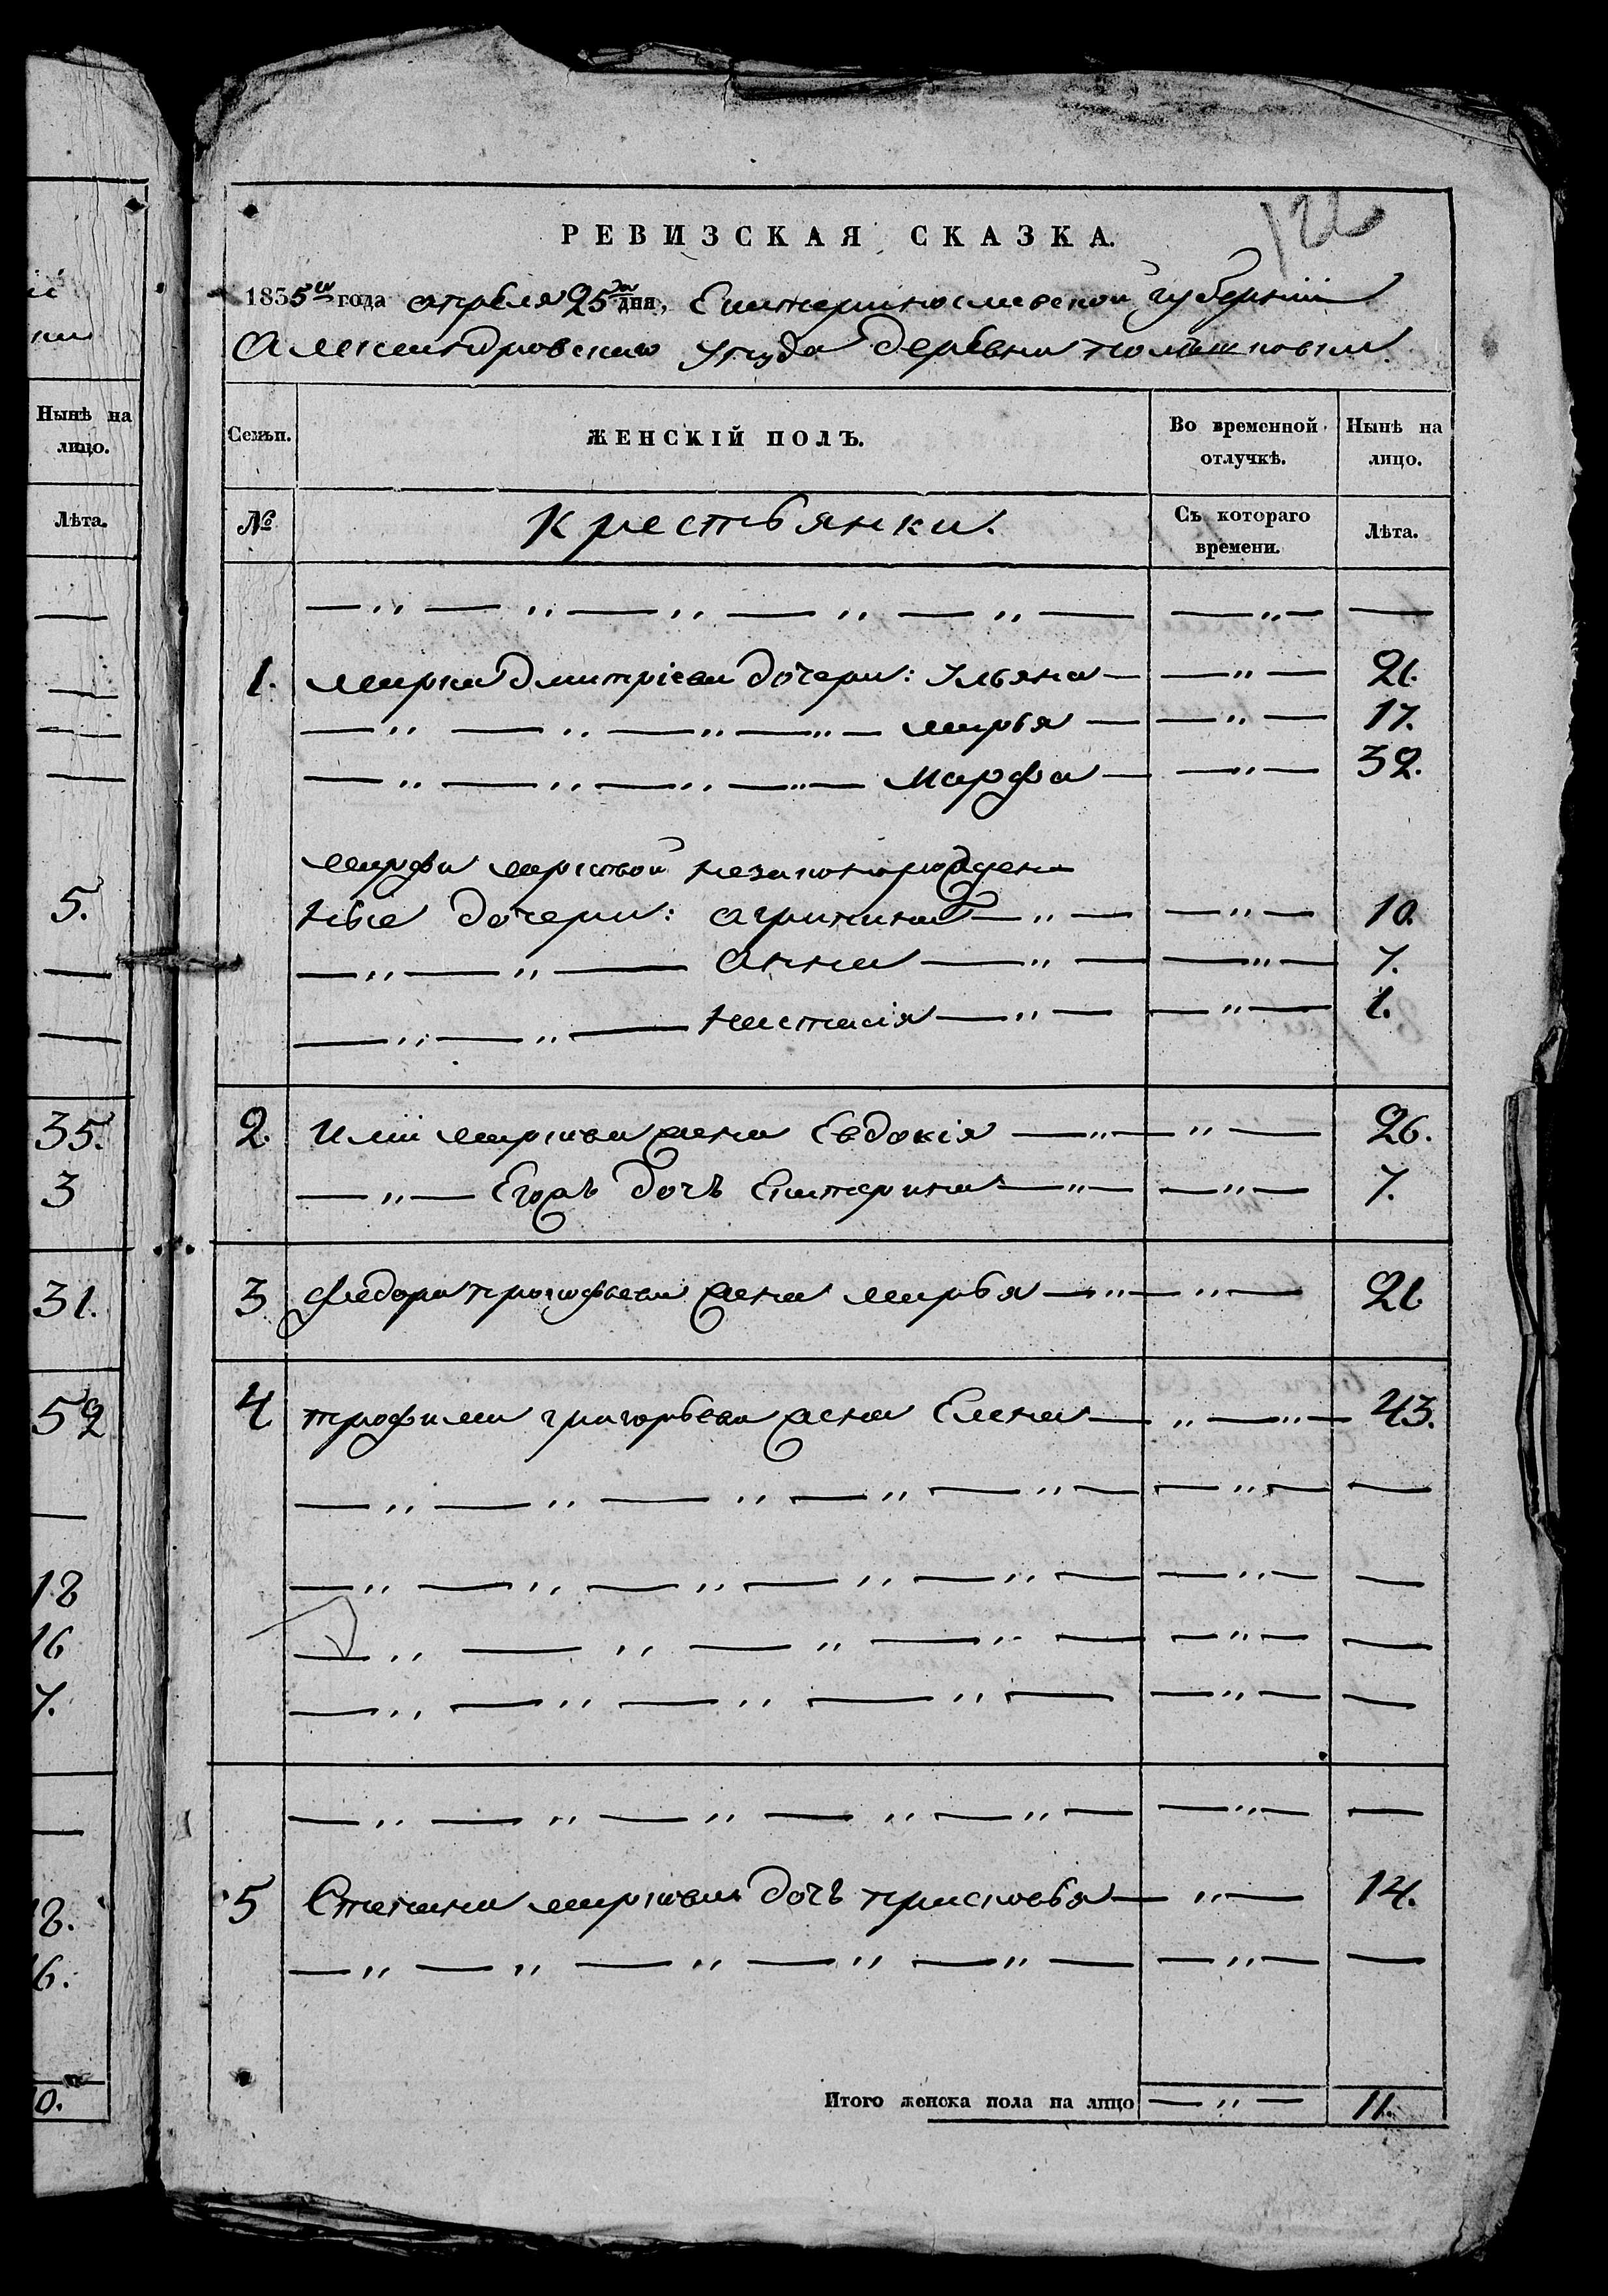 ій
ки
Нынѣ на
лицо.
Лѣта.
5.
35.
3
31.
52
18
16
7.
18.
16.
10.
РЕВИЗСКАЯ СКАЗКА.
1835го года апрѣля 25го дня, Екатеринославской губерніи
Александровскаго уѣзда деревни
Семьи.
ЖЕНСКІЙ ПОЛЪ.
Во временной отлучкѣ.
Нынѣ на лицо.
№
Крестьянки.
Съ котораго времени.
Лѣта.
— „ — „ — „ — „ — „ — — „ — —
1. марка дмитріева дочери: Ульяна — — „ — 21.
— „ — „ — „ — „ — марья — — „ — 17.
— „ — „ — „ — „ — Марфа — — „ — 32.
марфи марковой незаконорожден
ніе дочери: агрипина — „ — — „ — 10.
— „ — „ — анна — „ — — „ — 7.
— „ — „ — настасія — „ — — „ — 1.
2. Иліи маркова жена Евдокія — „ — „ — 26.
— „ — Егожъ дочь Екатерина — „ — — „ — 7.
3 федора прокофьева жена марья — „ — „ — 21
4 трофима григорьева жена Елена — „ — „ — 43.
— „ — „ — „ — „ — „ — — „ — —
— „ — „ — „ — „ — „ — — „ — —
— „ — „ — „ — „ — — „ — —
— „ — „ — „ — „ — — „ — —
— „ — „ — „ — „ — „ — — „ — —
5 Степана маркова дочь прасковья — „ — 14.
— „ — „ — „ — „ — „ — — „ — —
Итого женска пола на лицо — „ — 11.